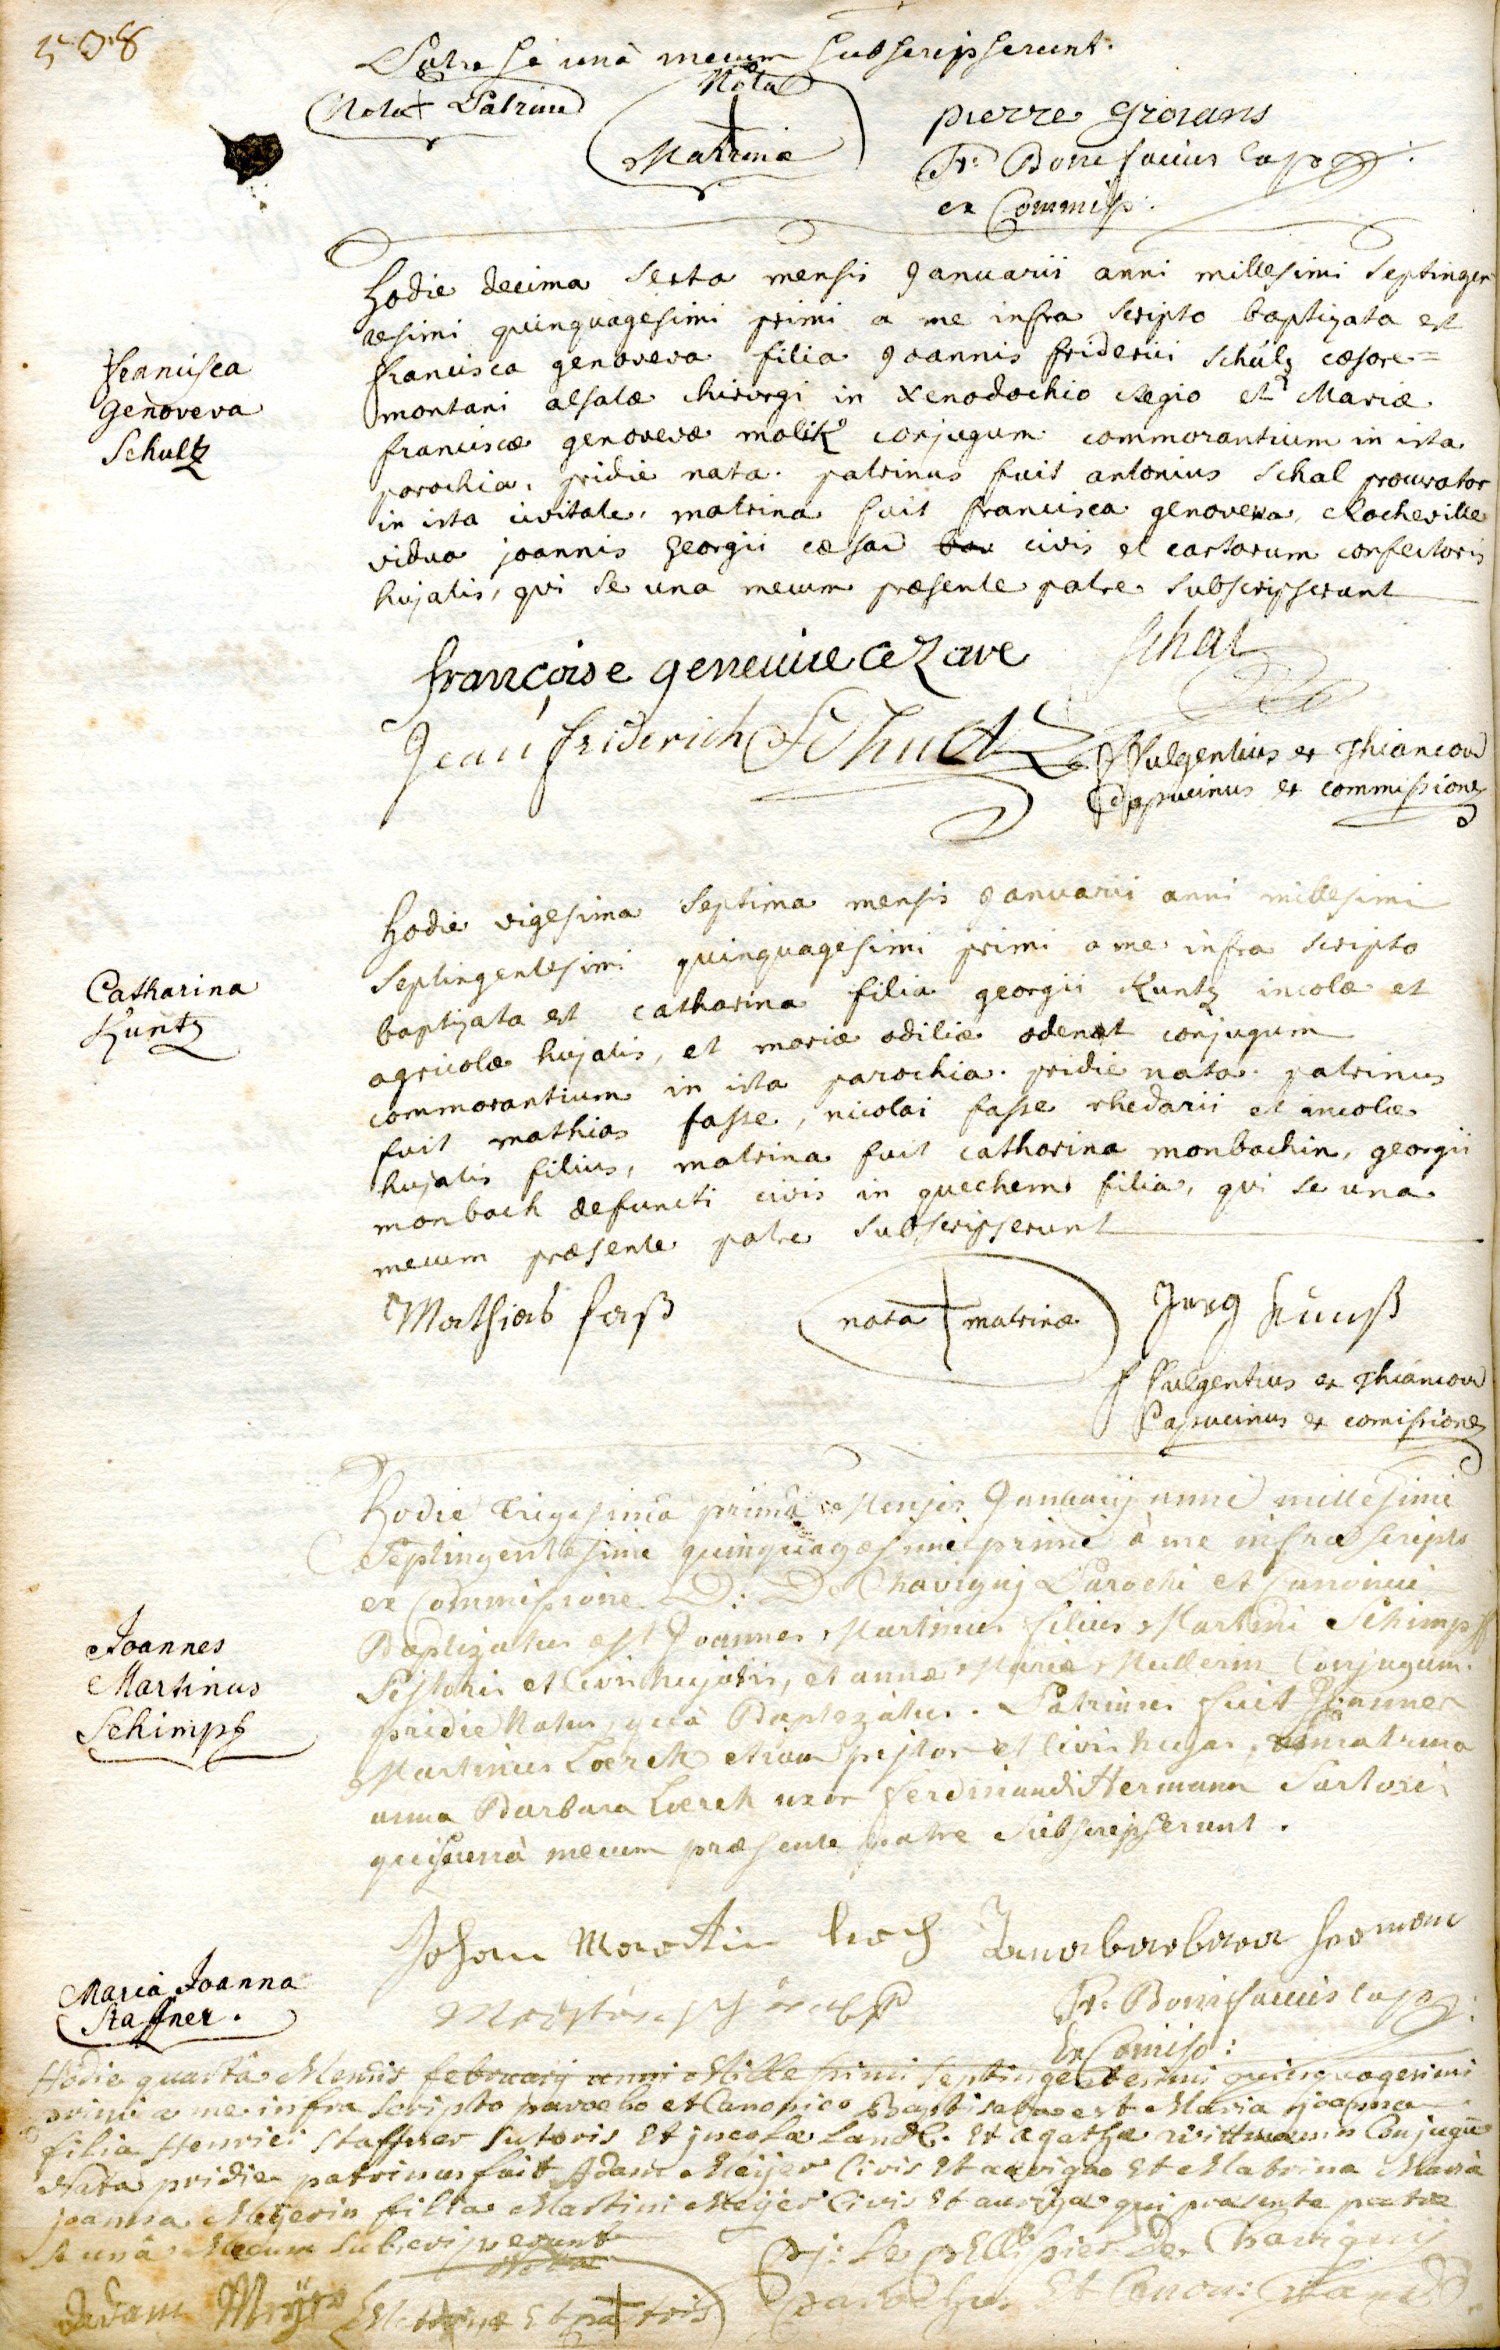 508
Patre se unà mecum subscripserunt.
Nota Patrini
Nota
Matrinæ
pierre groians
Fr: Bonifacius Cap
ex Commiss:
Francisca
Genoveva
Schultz
hodie decima sexta mensis Januarii anni millesimi septingen
tesimi quinquagesimi primi a me infra scripto baptizata est
francisca genoveva filia Joannis friderici schultz cæsare=
montani alsatæ chirurgi in Xenodochio Regio et Mariæ
franciscæ genovevæ malik conjugum commorantium in ista
parochia, pridie nata. patrinus fuit antonius schal procurator
in ista civitate, matrina fuit francisca genoveva Rocheville
vidua joannis georgii cæsar civis et cartarum confectoris
hujatis, qui se una mecum præsente patre subscripserunt
françoise genevive cezare
schal
Jean friderich Schultz
f fulgentius ex Thiancour
Capucinus ex commissione
Catharina
Kuntz
hodie vigesima septima mensis Januarii anni millesimi
septingentesimi quinquagesimi primi a me infra scripto
baptizata est catharina filia georgii Kuntz incolæ et
agricolæ hujatis, et mariæ odiliæ odenat conjugum
commorantium in ista parochia. pridie nata. patrinus
fuit mathias fasse, nicolai fasse rhedarii et incolæ
hujatis filius, matrina fuit catharina monbachin, georgii
monbach defuncti civis in quechem filia, qui se una
mecum præsente patre subscripserunt
Mathias faß
nota matrinæ
Jorg
f fulgentius ex Thiancour
Capucinus ex comissione
Joannes
Martinus
Schimpf
Hodie trigesima prima Mensis Januarij anni millesimi
Septingentesimi quinquagesimi primi à me infra scripto
ex Commissione D. De Chavignij Parochi et Canonici
Baptizatus est Joannes Martinus filius Martini Schimpff
Pistoris et Civis hujatis, et annæ Mariæ Mullerin Conjugum.
pridie Natus, quà Baptezatus. Patrinus fuit Joannes
Martinus Loerch etiam pistor et Civis hujas, matrina
anna Barbara Loerch uxor ferdinandi Hermann Sartoris
qui se unà mecum præsente patre subscripserunt.
Johan Martin
anabarbara herman
Fr: Bonifacius Cap:
Ex Comiss:
Maria Joanna
Staffner.
Hodie quarta Mensis februarij anni Millesimi septingentesimi quinquagesimi
primi a me infra scripto parocho et Canonico Baptisata est Maria joanna
filia Henrici Staffner Sutoris Et jncolæ Land. Et Agathæ wittmanin Conjugum
Nata pridie patrinus fuit Adam Meijer Civis Et auriga Et Matrina Maria
joanna Meijerin filia Martini Meijer Civis Et aurigæ qui præsente patre
se unà Mecum subscripserunt
Nota
Matrinæ Et patris
Adam Meÿer
j: Le Pellissier De Chavignij
Parochus Et Canon: Land